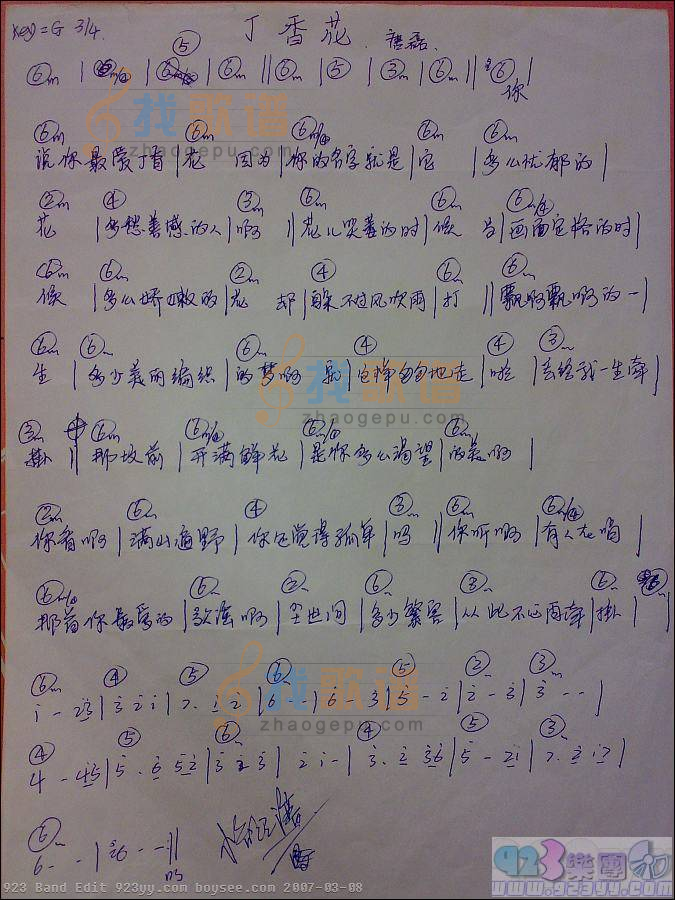 Key=G 3/4. 丁香花 . 唐磊.
⑤
⑥m | | | ⑥m || ⑥m | ⑤ | ③m | ⑥m || ⑥ |
你
⑥m ⑥m ⑥m/④ ⑥m ⑥m
说你最爱丁香 | 花 因为 | 你的名字就是 | 它 | 多么忧郁的 |
②m ④ ③m ⑥m ⑥m/④
花 | 多愁善感的人 | 啊 || 花儿哭萎的时 | 候 当 | 画面定格的时
⑥m ⑥m ②m ④ ⑥m ⑥m
候 | 多么娇嫩的 | 花 却 | 躲不过风吹雨 | 打 || 飘啊飘啊的一 |
⑥m ⑥m ⑥m ④ ④ ③m
生 | 多少美丽编织 | 的梦啊 就 | 这样匆匆地走 | 啦 | 去给我一生牵 |
③m ⑥m ⑥m/④ ⑥m/④ ⑥m
挂 || 那坟前 | 开满鲜花 | 是你多么渴望 | 的美啊 |
②m ⑥m ④ ③m ⑥m ⑥m/④
你看啊 | 满山遍野 | 你还觉得孤单 | 吗 || 你听啊 | 有人在唱
⑥m/④ ⑥m ②m ⑥m ③m ⑥m
那首你最爱的 | 歌谣啊 | 尘世间 | 多少繁芜 | 从此不必再牵 | 挂 |
⑥m ④ ⑤ ⑥m ⑤ ②m ③m
i - 23 | 3 2 i | 7. i 2 | 6 - - | 6 - 3 | 5 - 2 | 2 - 3 | 3 - - |
④ ⑤ ⑥m ④ ⑤ ③m
4 - 45 | 5. 6 52 | 3 2 3 | 2 i - | 3. 2 36 | 5 - 2i | 7. 2 i7 |
⑥m
6 - - | 26 - - ||
吗
找歌谱
zhaogepu.com
找歌谱
zhaogepu.com
找歌谱
zhaogepu.com
923樂團
www.923yy.com
923 Band Edit 923yy.com boysee.com 2007-03-08